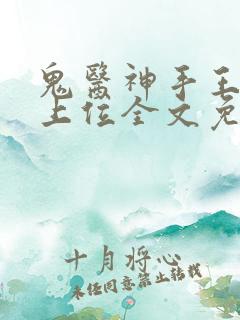 鬼醫神手王
上位全文免
十月将心
未经同意禁止转载